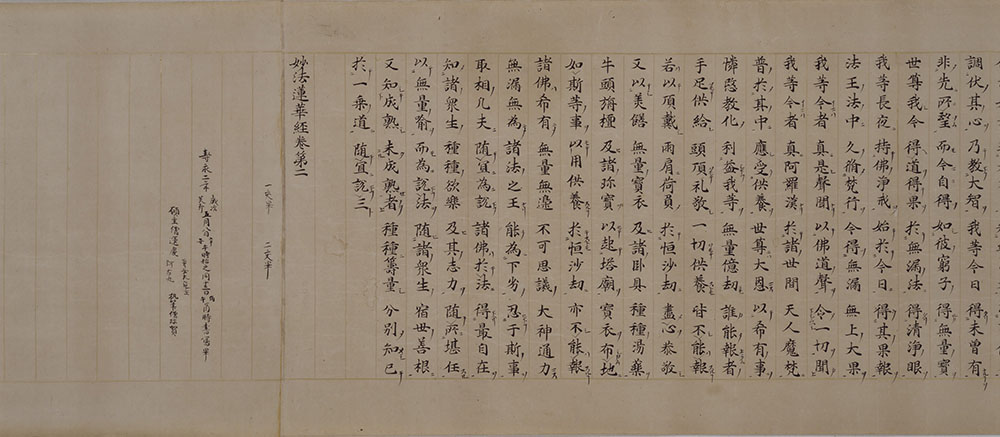 調伏其心 乃教大智 我等今日 得未曾有
非先所望 而今自得 如彼窮子 得無量寶
世尊我今 得道得果 於無漏法 得清淨眼
我等長夜 持佛淨戒 始於今日 得其果報
法王法中 久脩梵行 今得無漏 無上大果
我等今者 真是聲聞 以佛道聲 令一切聞
我等今者 真阿羅漢 於諸世間 天人魔梵
普於其中 應受供養 世尊大恩 以希有事
憐愍教化 利益我等 無量億劫 誰能報者
手足供給 頭頂礼敬 一切供養 皆不能報
若以頂戴 兩肩荷負 於恒沙劫 盡心恭敬
又以美饍 無量寶衣 及諸卧具 種種湯藥
牛頭旃檀 及諸珍寶 以起塔廟 寶衣布地
如斯等事 以用供養 於恒沙劫 亦不能報
諸佛希有 無量無邊 不可思議 大神通力
無漏無為 諸法之王 能為下劣 忍于斯事
取相凡夫 随冝為說 諸佛於法 得最自在
知諸衆生 種種欲樂 及其志力 随所堪任
以無量喻 而為說法 随諸衆生 宿世善根
又知成熟 未成熟者 種種籌量 分別知已
於一乗道 随冝說三
妙法蓮華經卷第二
一交畢 二交畢
寿永二年 歳次癸卯 五月 書寫畢